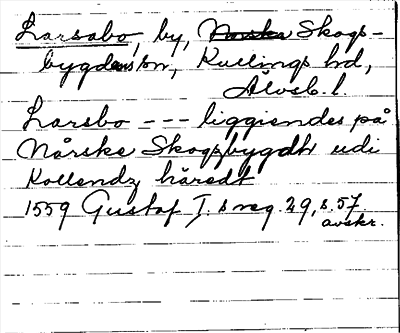 Larsabo, by, Norska Skogs-
bygdens sn, Kullings hd,
Älvsb. l.
Larsbo --- liggiendes på
Nårske Skogzbygdh udi
Kollendz häredt
1559 Gustaf I:s reg. 29, s. 57.
avskr.